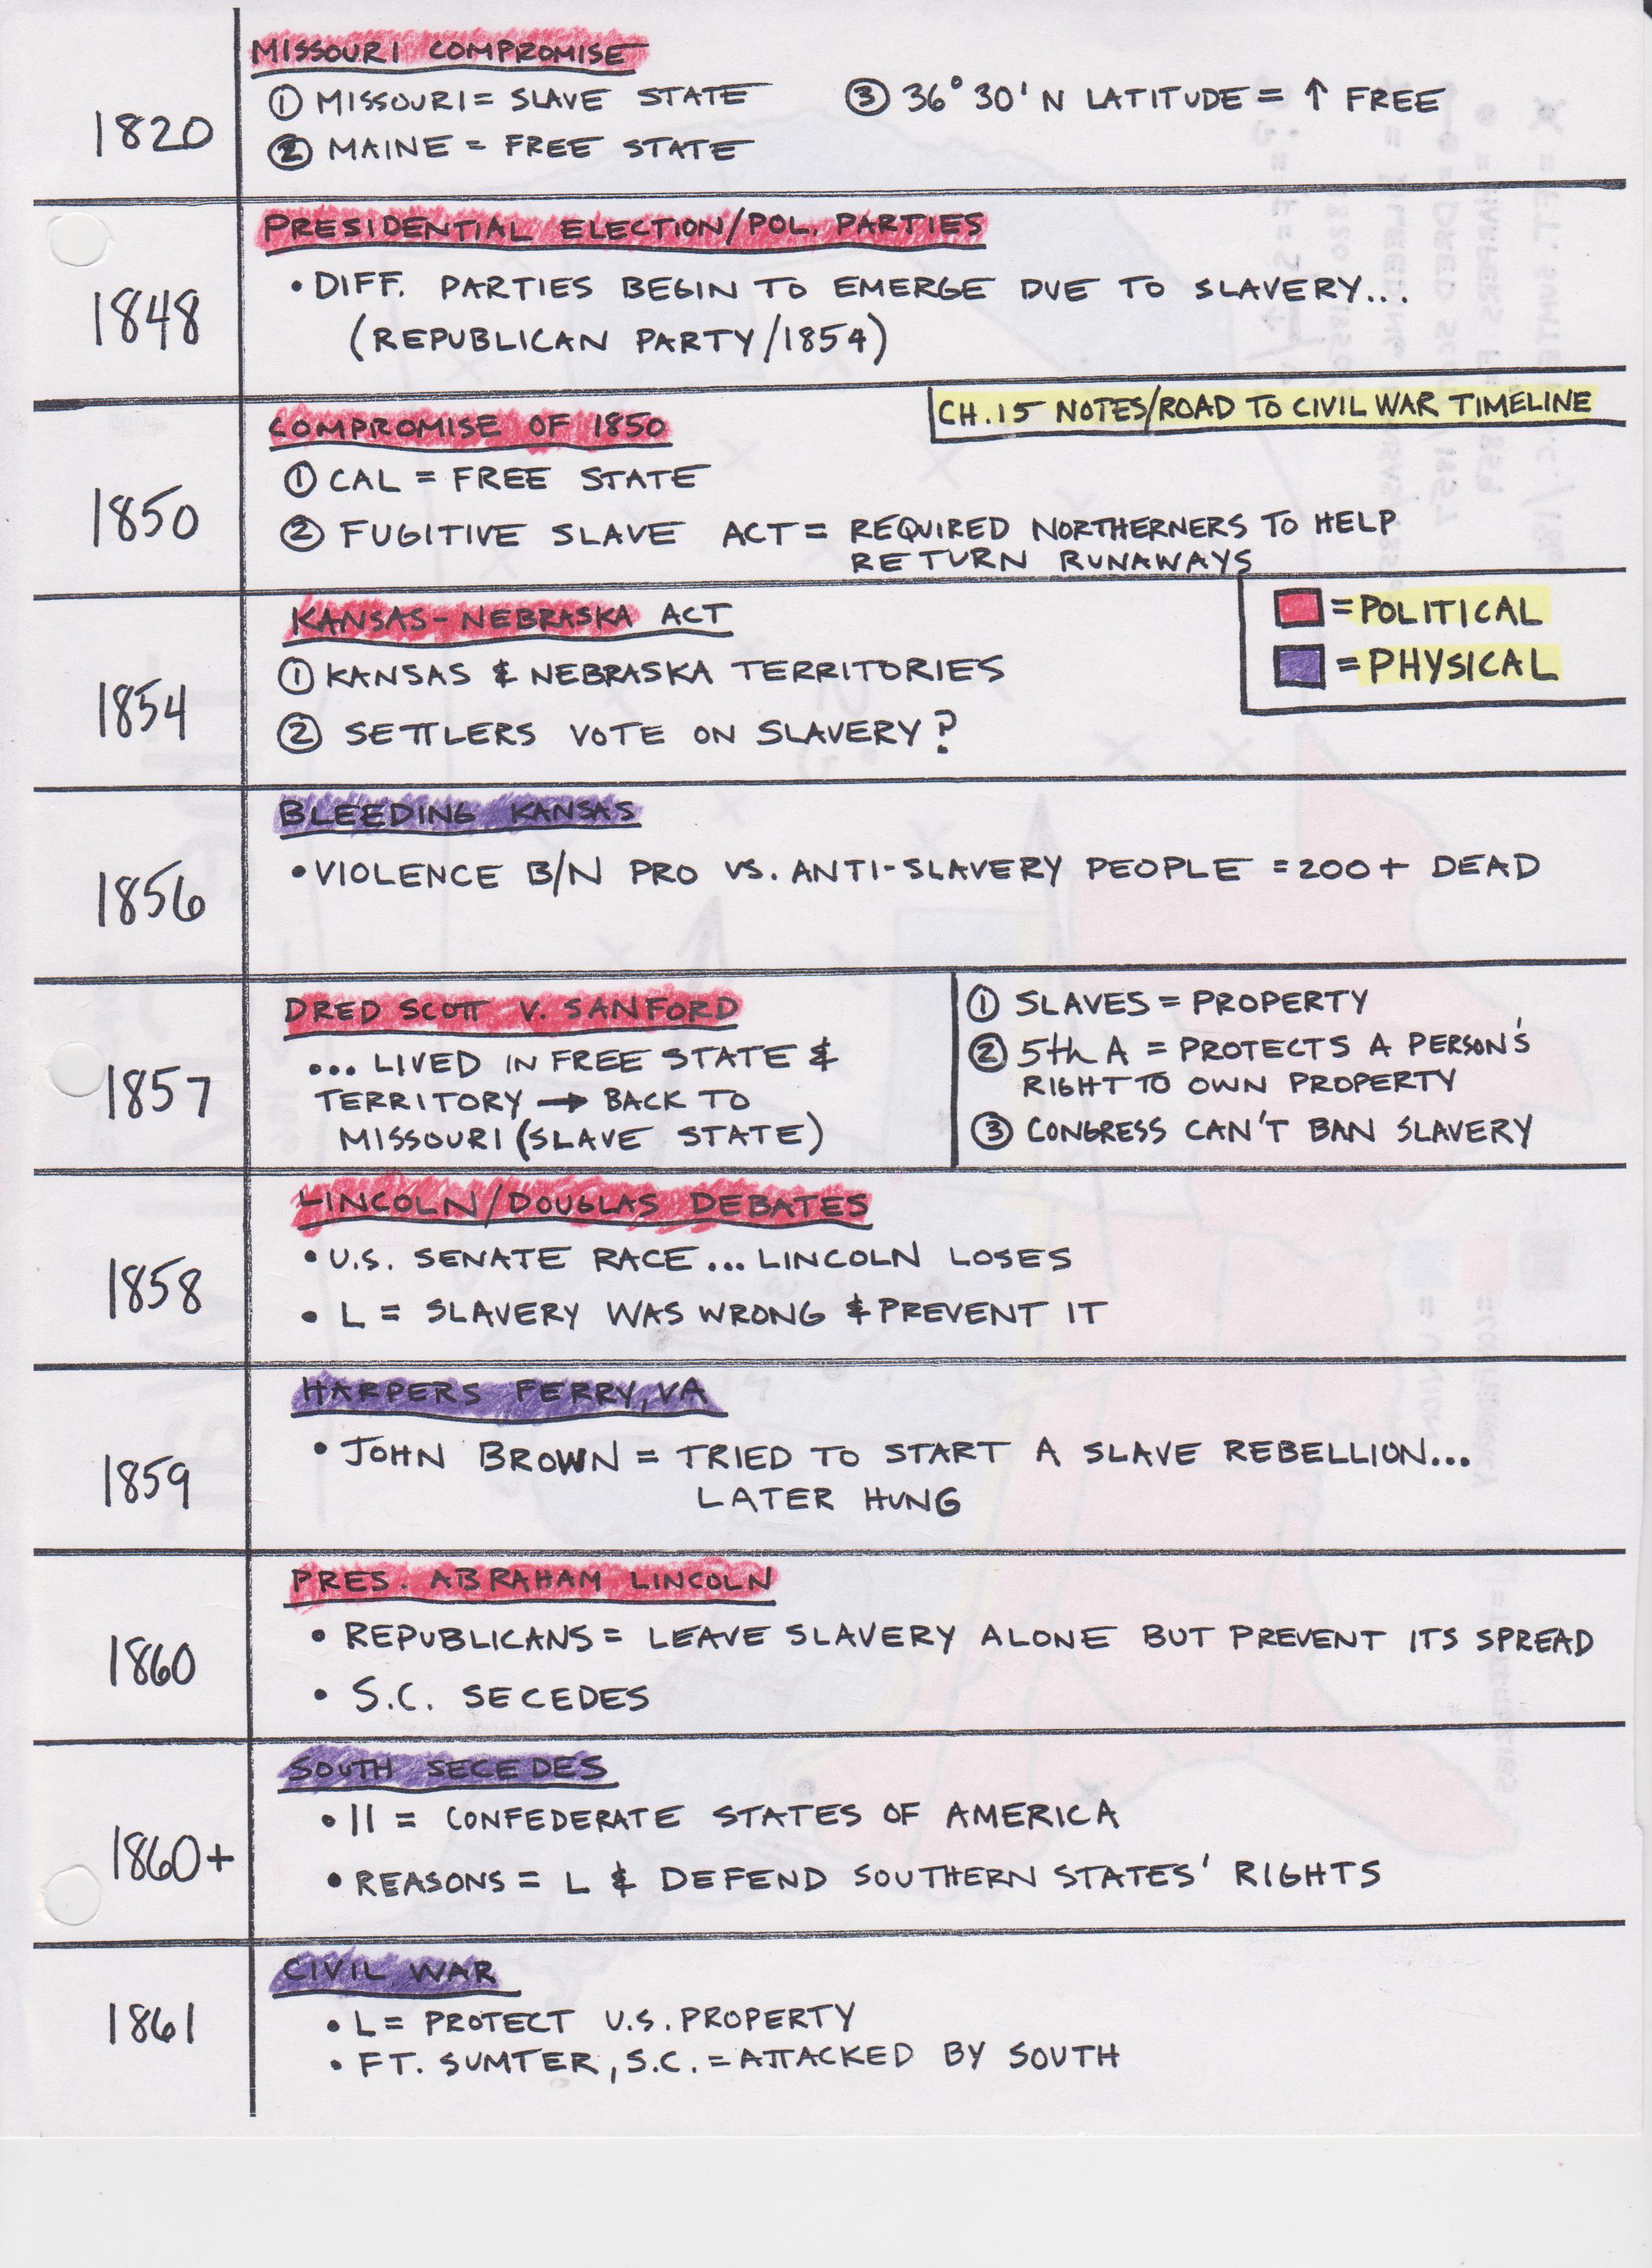 MISSOURI COMPROMISE
1820
① MISSOURI = SLAVE STATE
② MAINE = FREE STATE
③ 36° 30' N LATITUDE = ↑ FREE
PRESIDENTIAL ELECTION/POL. PARTIES
1848
• DIFF. PARTIES BEGIN TO EMERGE DUE TO SLAVERY...
(REPUBLICAN PARTY/1854)
CH. 15 NOTES/ROAD TO CIVIL WAR TIMELINE
COMPROMISE OF 1850
1850
① CAL = FREE STATE
② FUGITIVE SLAVE ACT = REQUIRED NORTHERNERS TO HELP
RETURN RUNAWAYS
= POLITICAL
= PHYSICAL
KANSAS-NEBRASKA ACT
1854
① KANSAS & NEBRASKA TERRITORIES
② SETTLERS VOTE ON SLAVERY?
BLEEDING KANSAS
1856
• VIOLENCE B/N PRO VS. ANTI-SLAVERY PEOPLE = 200+ DEAD
DRED SCOTT V. SANFORD
1857
... LIVED IN FREE STATE &
TERRITORY → BACK TO
MISSOURI (SLAVE STATE)
① SLAVES = PROPERTY
② 5th A = PROTECTS A PERSON'S
RIGHT TO OWN PROPERTY
③ CONGRESS CAN'T BAN SLAVERY
LINCOLN/DOUGLAS DEBATES
1858
• U.S. SENATE RACE... LINCOLN LOSES
• L = SLAVERY WAS WRONG & PREVENT IT
HARPERS FERRY, VA
1859
• JOHN BROWN = TRIED TO START A SLAVE REBELLION...
LATER HUNG
PRES. ABRAHAM LINCOLN
1860
• REPUBLICANS = LEAVE SLAVERY ALONE BUT PREVENT ITS SPREAD
• S.C. SECEDES
SOUTH SECEDES
1860+
• 11 = CONFEDERATE STATES OF AMERICA
• REASONS = L & DEFEND SOUTHERN STATES' RIGHTS
CIVIL WAR
1861
• L = PROTECT U.S. PROPERTY
• FT. SUMTER, S.C. = ATTACKED BY SOUTH